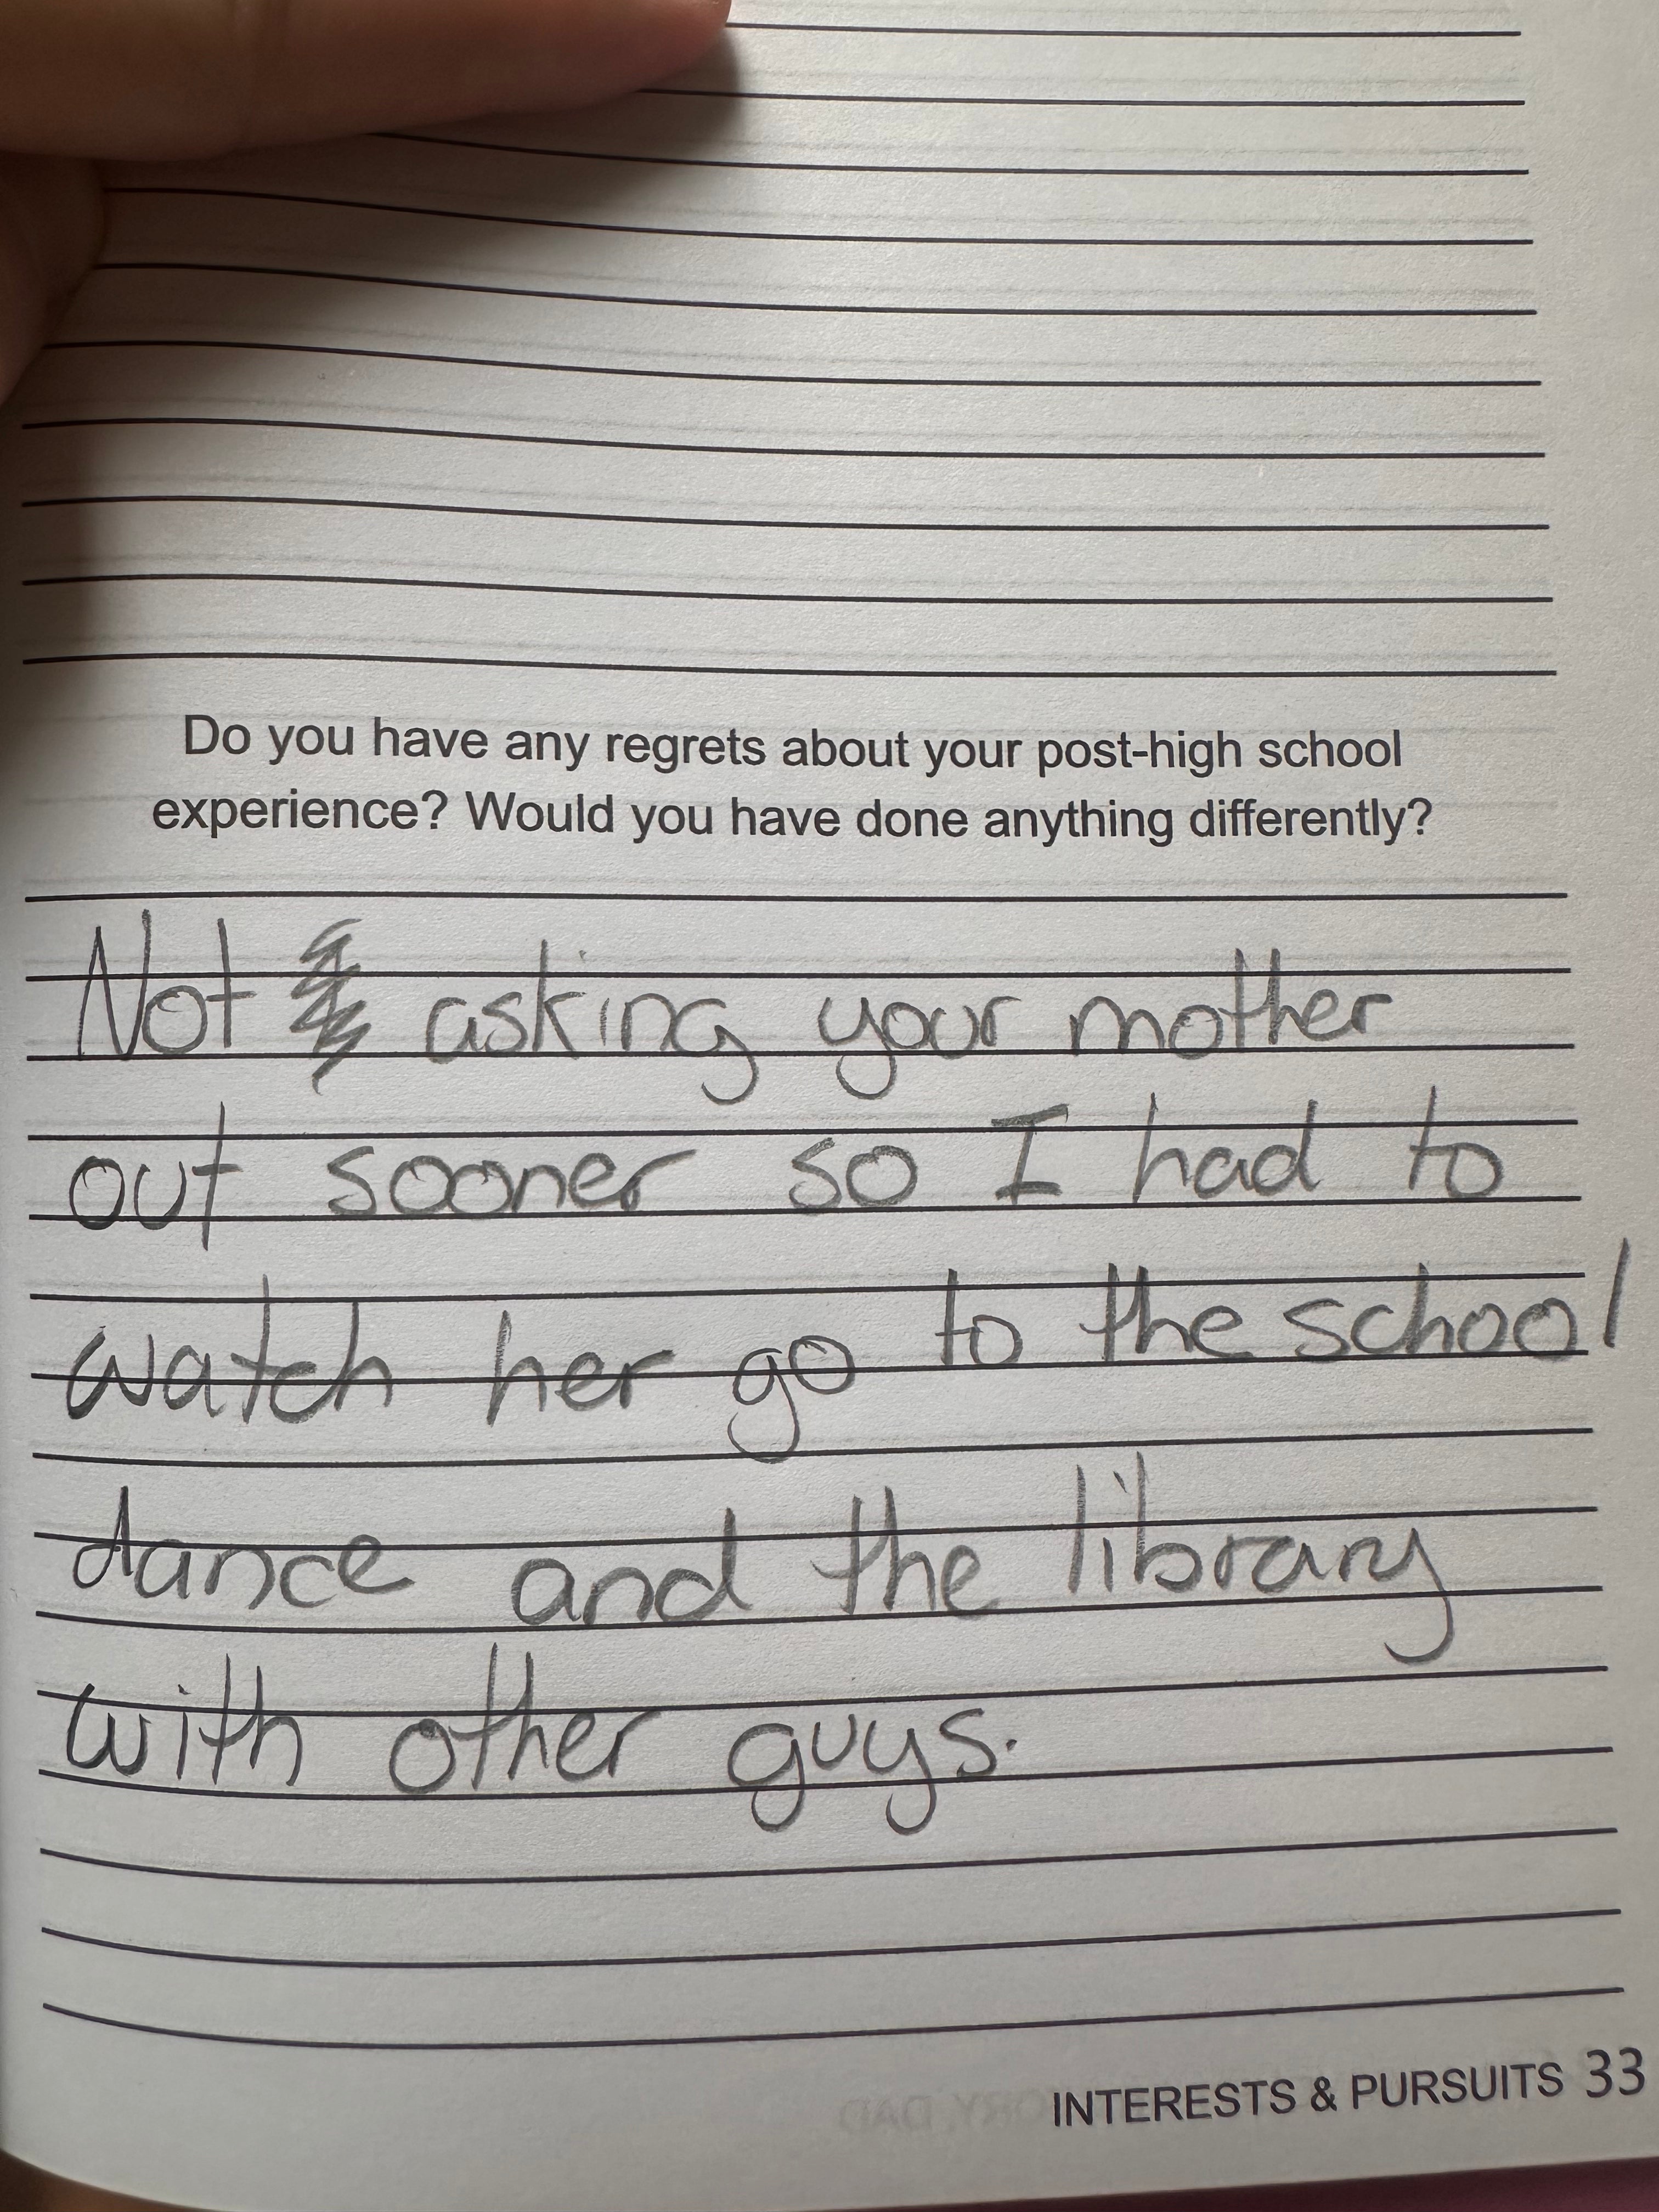 Do you have any regrets about your post-high school
experience? Would you have done anything differently?
Not asking your mother
out sooner so I had to
watch her go to the school
dance and the library
with other guys.
INTERESTS & PURSUITS 33